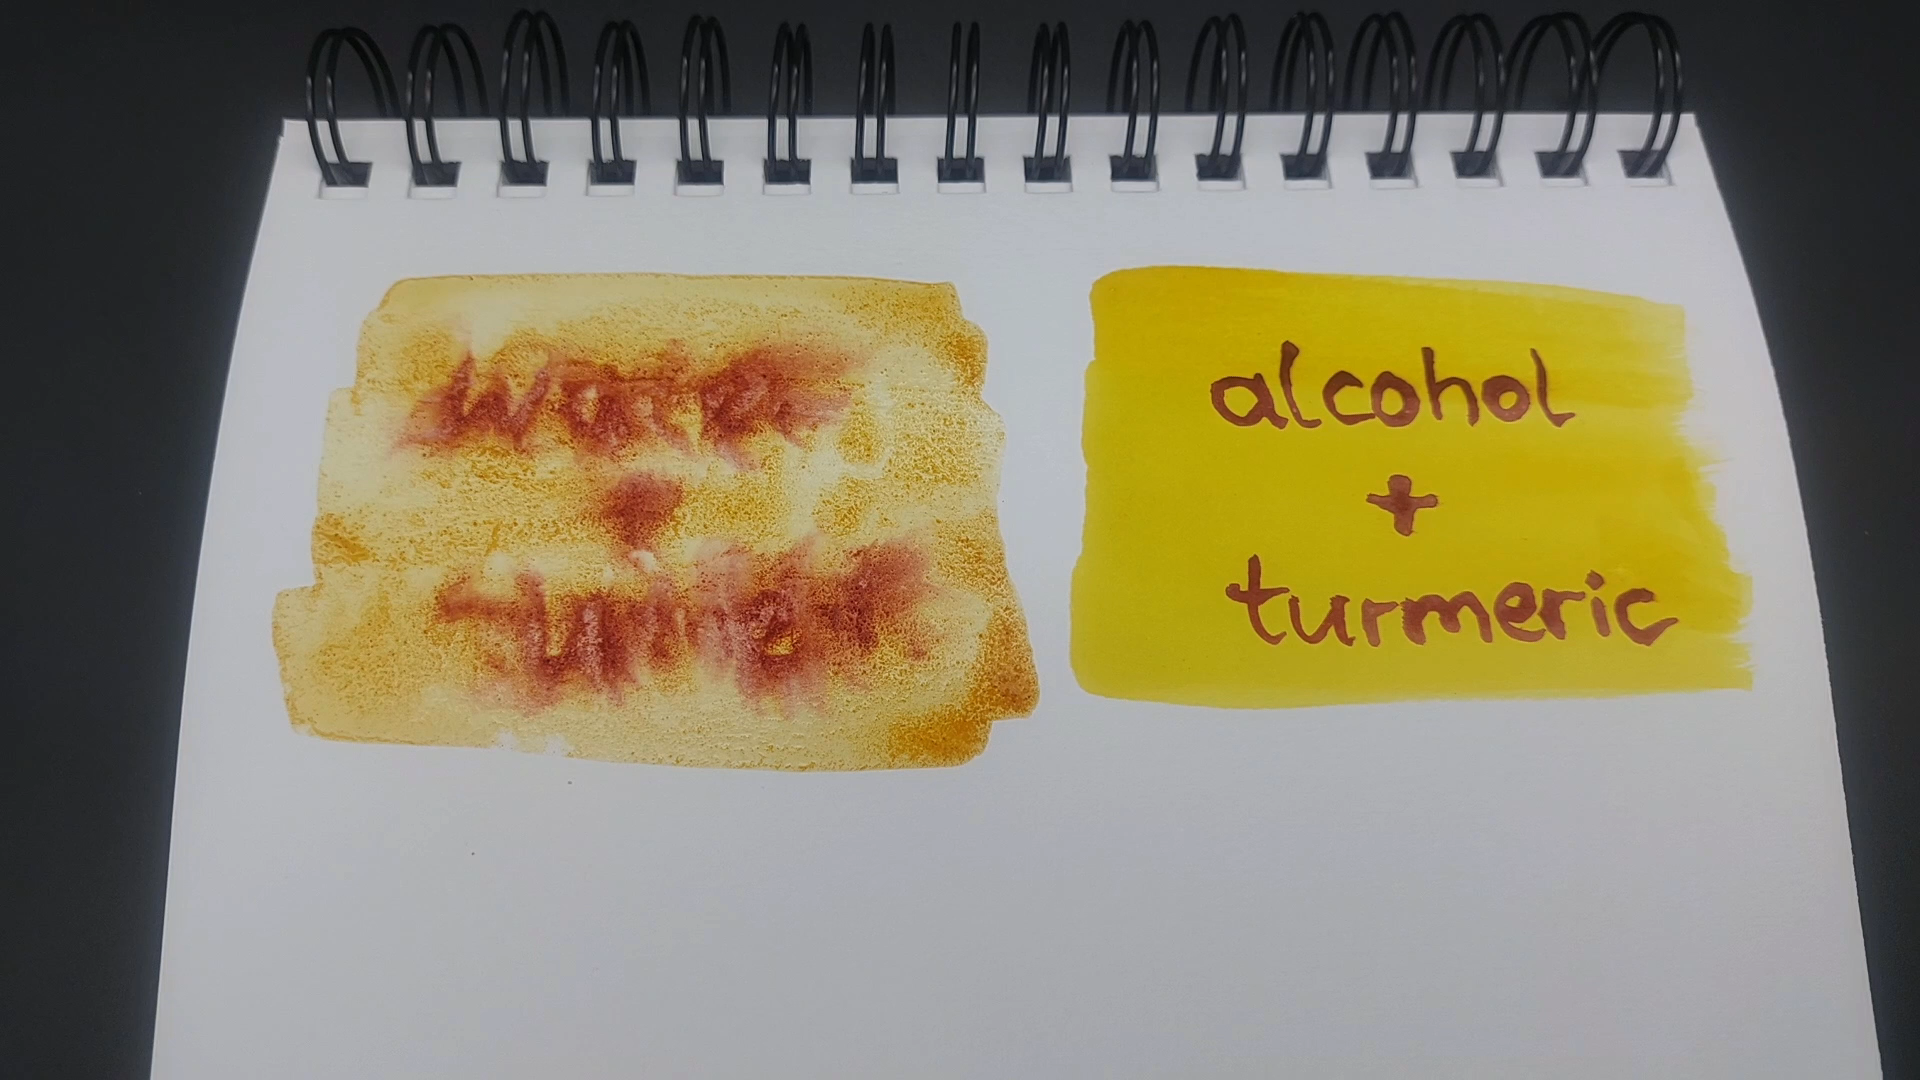 water
+
alcohol
+
turmeric